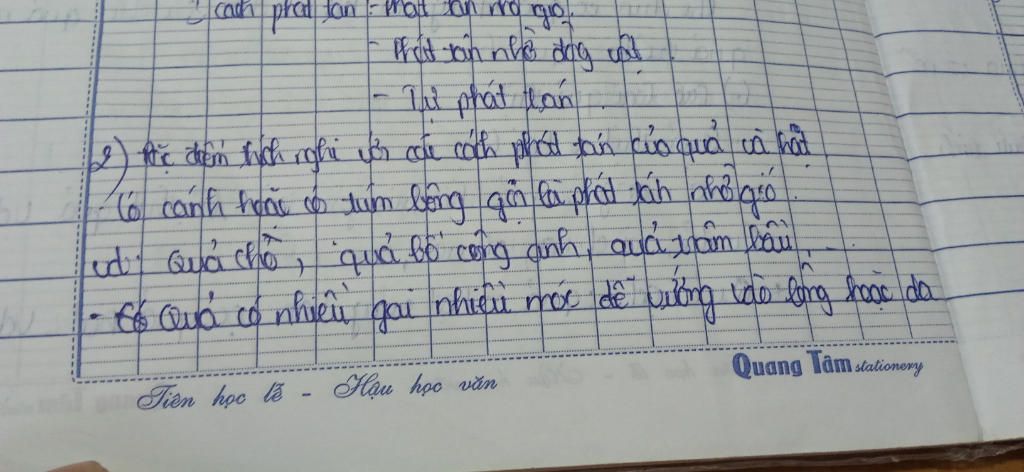 cách phát tán - Phát tán nhờ gió.
- Phát tán nhờ động vật
- Tự phát tán.
2) Đặc điểm thích nghi với các cách phát tán của quả và hạt
Có cánh hoặc có túm lông gọi là phát tán nhờ gió.
vd: Quả chò, quả bồ công anh, quả trâm bầu, ...
- Quả có nhiều gai nhiều móc dễ vướng vào lông hoặc da
Tiên học lễ - Hậu học văn
Quang Tâm stationery